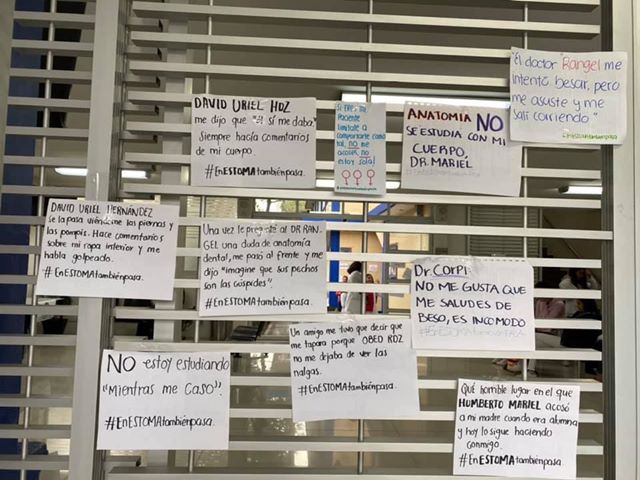 DAVID URIEL HDZ
me dijo que "él sí me daba"
Siempre hacía comentarios
de mi cuerpo.
#EnESTOMAtambiénpasa.
SI ERES MI
Paciente
limítate a
comportarte como
tal, no me
acoses, no
estoy sola!
ANATOMÍA NO
SE ESTUDIA CON MI
CUERPO,
DR. MARIEL
#EnEstomatambiénpasa
"El doctor Rangel me
intentó besar, pero
me asusté y me
salí corriendo"
#EnEstomatambiénpasa
DAVID URIEL HERNÁNDEZ
se la pasa viéndome las piernas y
las pompis. Hace comentarios
sobre mi ropa interior y me
habla golpeado.
#EnESTOMAtambiénpasa.
Una vez le pregunté al DR RAN-
GEL una duda de anatomía
dental, me pasó al frente y me
dijo "imagine que sus pechos
son las cúspides".
#EnESTOMAtambiénpasa.
Dr. CORPI
NO ME GUSTA QUE
ME SALUDES DE
BESO, ES INCOMODO
#EnESTOMAtambiénpasa
Un amigo me tuvo que decir que
me tapara porque OBED RDZ
no me dejaba de ver las
nalgas.
#EnESTOMAtambiénpasa.
NO estoy estudiando
"Mientras me caso".
#EnESTOMAtambiénpasa.
Qué horrible lugar en el que
HUMBERTO MARIEL acosó
a mi madre cuando era alumna
y hoy lo sigue haciendo
conmigo.
#EnESTOMAtambiénpasa.